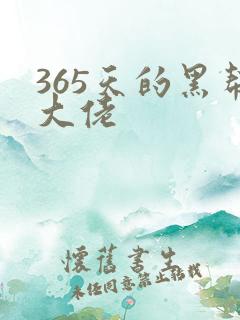 365天的黑帮
大佬
懷舊書生
未经同意禁止转载